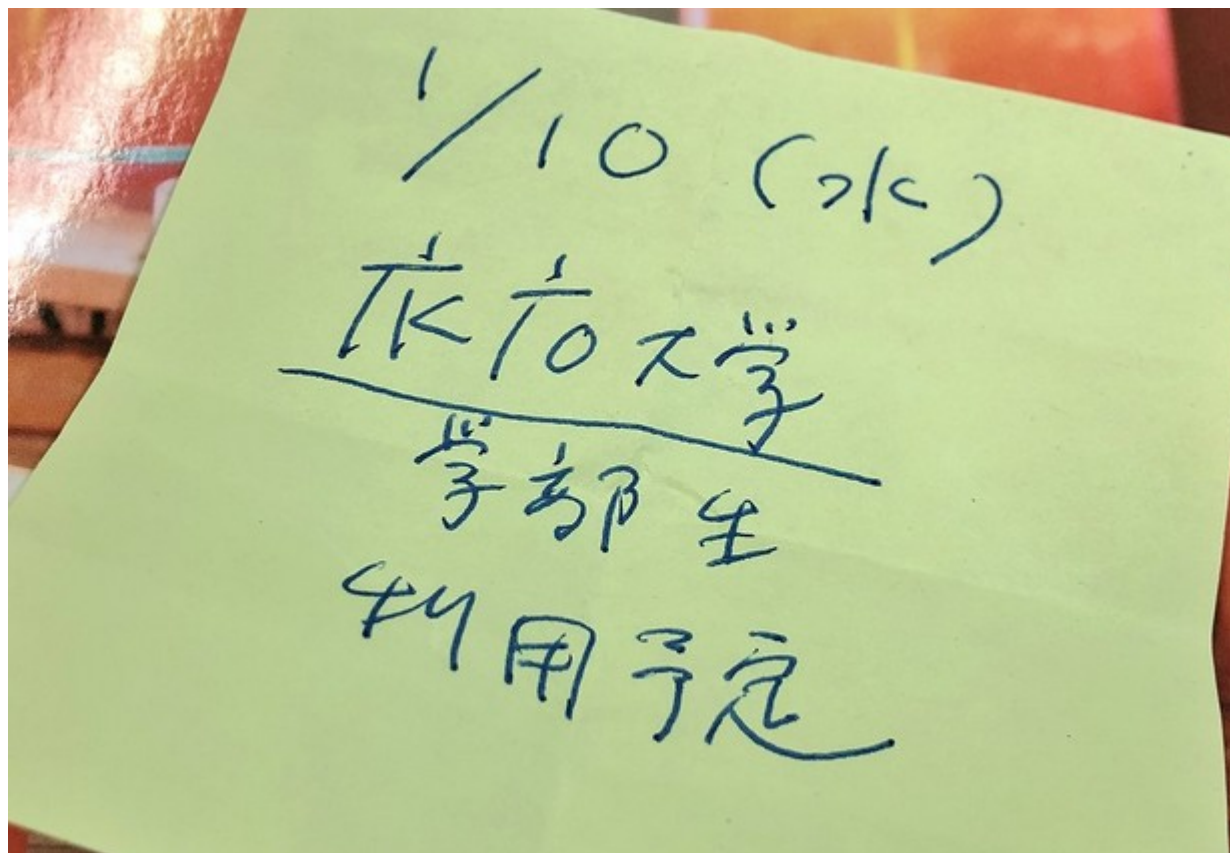 1/10 (水)
慶應大学
学部生
利用予定